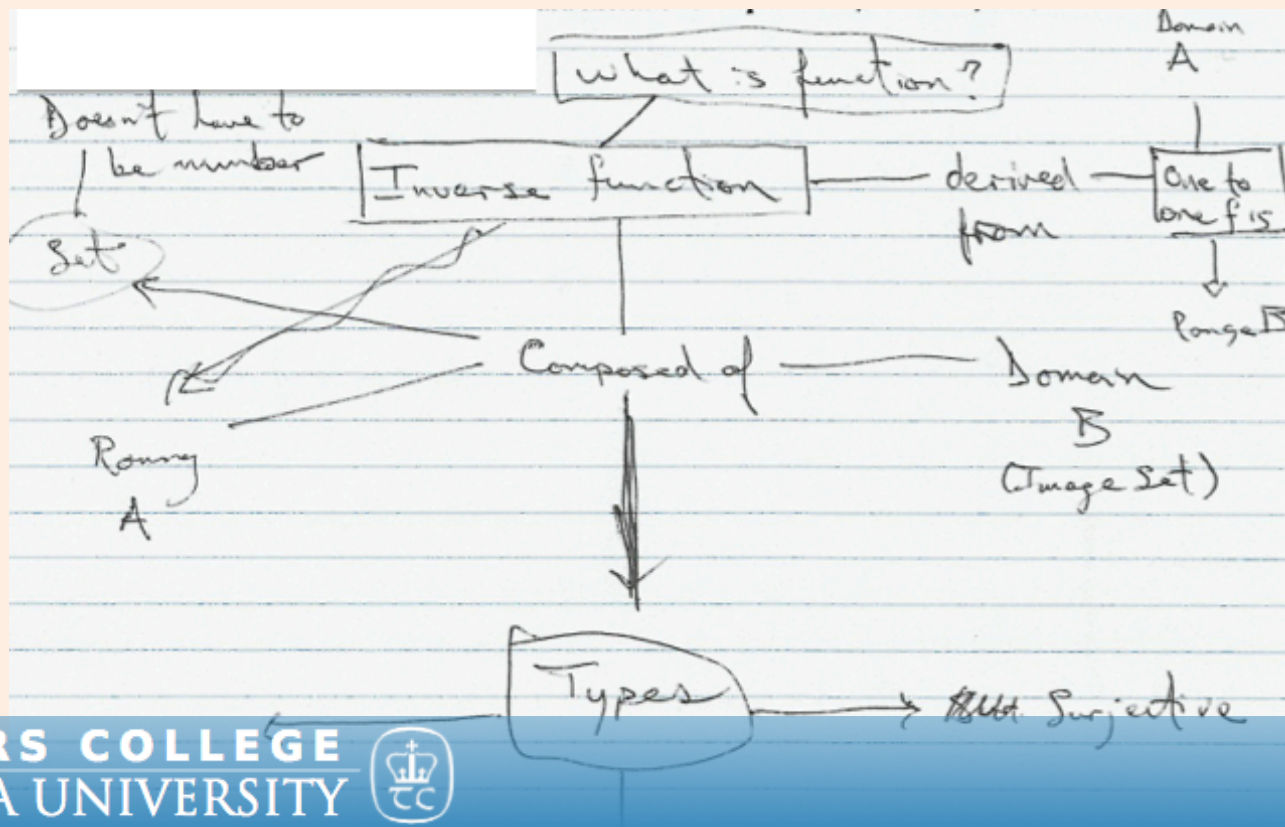 Domain
A
What is function?
Doesn't have to
be number
Inverse function
derived
from
One to
one f is
Set
Range B
Composed of
Domain
B
(Image Set)
A
Types
Surjective
RS COLLEGE
A UNIVERSITY
TC